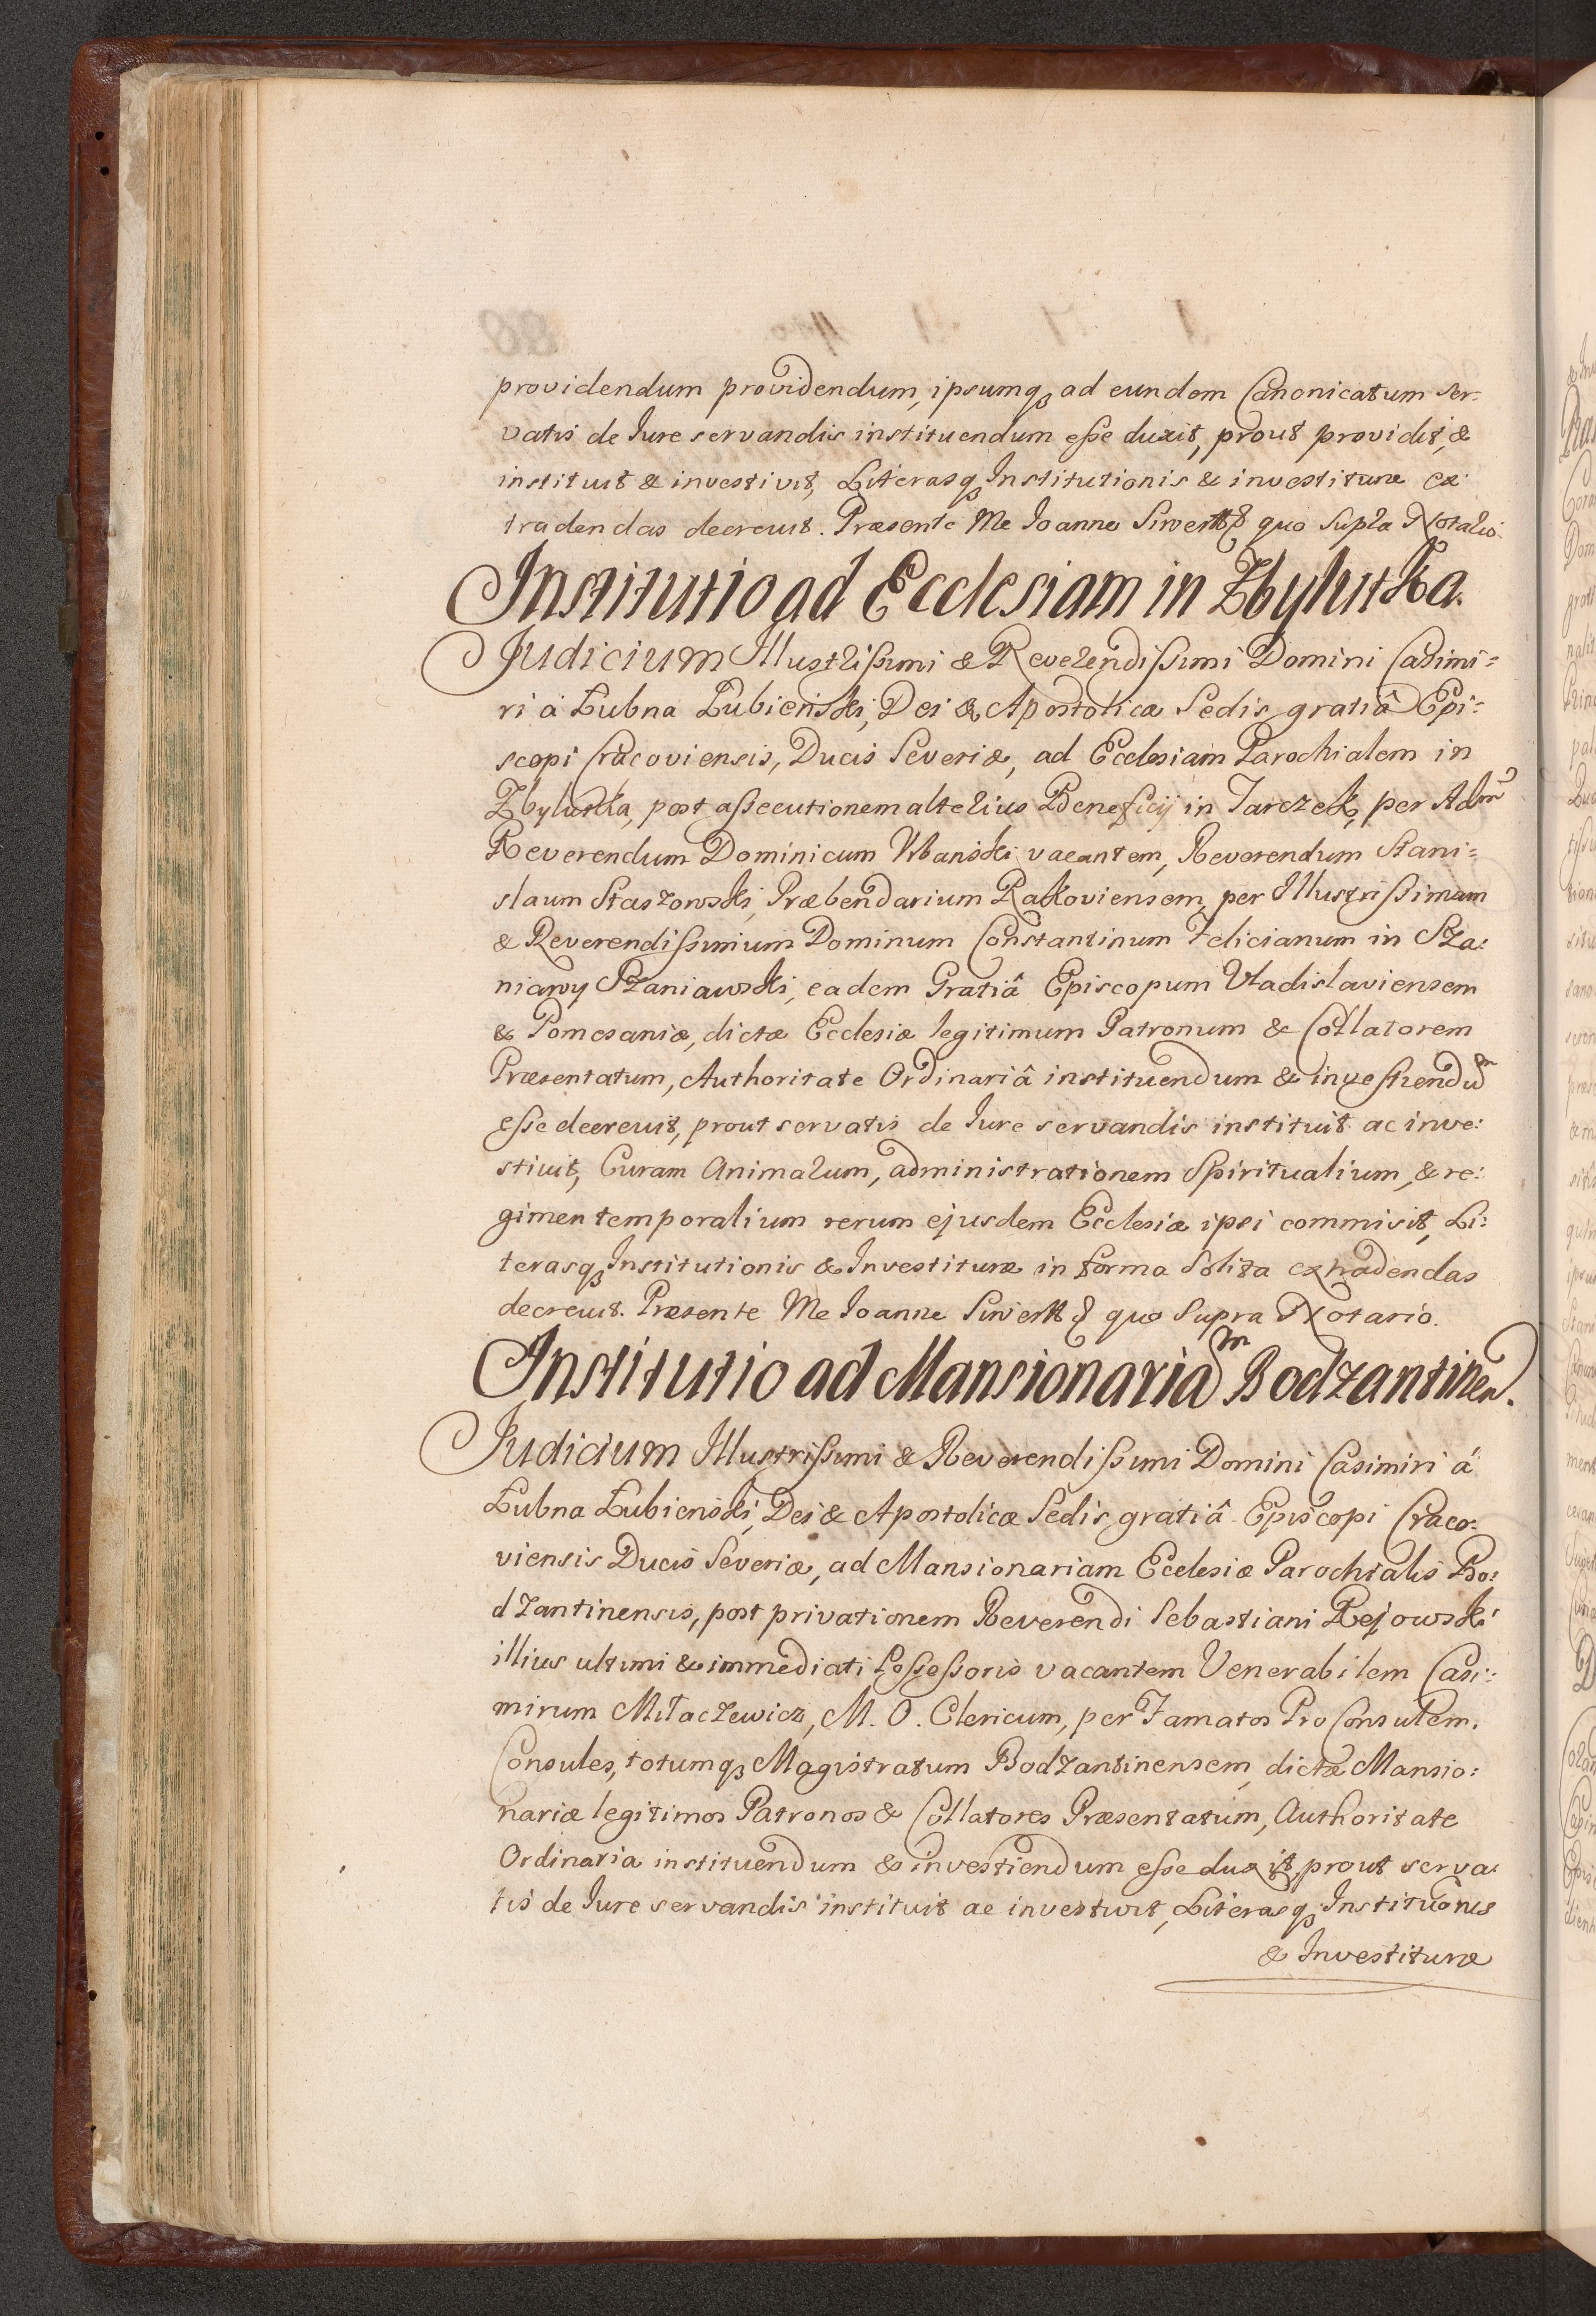 providendum providendum, ipsumqꝫ ad eundem Canonicatum ser-
vatis de Iure servandis instituendum eſse duxit, prout providit, &
instituit & investivit, Literasqꝫ Institutionis & investituræ ex
tradendas decrevit. Præsente Me Ioanne Siwertt quo Supra Notario.
Institutio ad Ecclesiam in Zbylutka.
Judicium Illustriſsimi & Reverendiſsimi Domini Casimi=
ri à Łubna Łubieński, Dei & Apostolica Sedis gratiâ Epi=
scopi Cracoviensis, Ducis Severiæ, ad Ecclesiam Parochialem in
Zbylutka, post aſsecutionem alterius Beneficij in Tarczek, per Adm̃
Reverendum Dominicum Vrbański vacantem, Reverendum Stani=
slaum Staszowski, Præbendarium Rakoviensem, per Illustriſsimam
& Reverendiſsimium Dominum Constantinum Felicianum in Sza:
niawy Szaniawski, eadem Gratiâ Episcopum Vladislaviensem
& Pomesaniæ, dictæ Ecclesiæ legitimum Patronum & Collatorem
Præsentatum, Authoritate Ordinariâ instituendum & investiendũ
eſse decrevit, prout servatis de Iure servandis instituit ac inve:
stivit, Curam Animarum, administrationem Spiritualium, & re:
gimen temporalium rerum ejusdem Ecclesiæ ipsi commisit, Li:
terasqꝫ Institutionis & Investituræ in forma Solita extradendas
decrevit. Præsente Me Ioanne Siwertt quo Supra Notario.
Institutio ad Mansionariam Bodzantinen.
Judicium Illustriſsimi & Reverendiſsimi Domini Casimiri á
Łubna Łubieński, Dei & Apostolicæ Sedis gratiâ Episcopi Craco:
viensis Ducis Severiæ, ad Mansionariam Ecclesiæ Parochialis Bo:
dzantinensis, post privationem Reverendi Sebastiani Rejowski
illius ultimi & immediati Poſseſsoris vacantem Venerabilem Casi:
mirum Miłaczewicz, M. O. Clericum, per Famatos Pro Consulem,
Consules, totumqꝫ Magistratum Bodzantinensem, dictæ Mansio:
nariæ legitimos Patronos & Collatores Præsentatum, Authoritate
Ordinaria instituendum & investiendum eſse duxit, prout serva:
tis de Iure servandis instituit ac investivit, Literasqꝫ Instituonis
& Investituræ